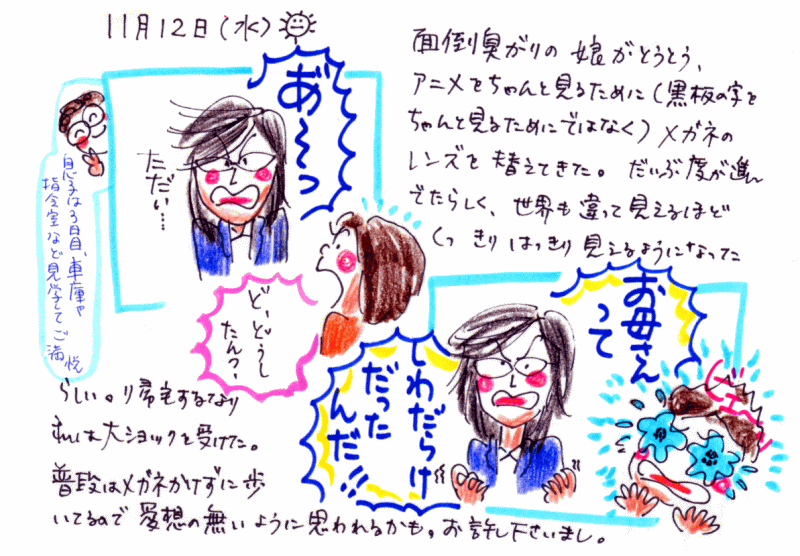 11月12日(水)
面倒臭がりの娘がとうとう、
アニメをちゃんと見るために(黒板の字を
ちゃんと見るためにではなく)メガネの
レンズを替えてきた。だいぶ度が進ん
でたらしく、世界も違って見えるほど
くっきりはっきり見えるようになった
あ〜っ
ただい…
息子は3日目、車庫や
指令室など見学してご満悦
ど、どうし
たんっ、
お母さん
って
しわだらけ
だった
んだ!!
ヒエ〜
らしい。り帰宅するなり
われは大ショックを受けた。
普段はメガネかけずに歩
いてるので愛想の無いように思われるかも。お許し下さいまし。